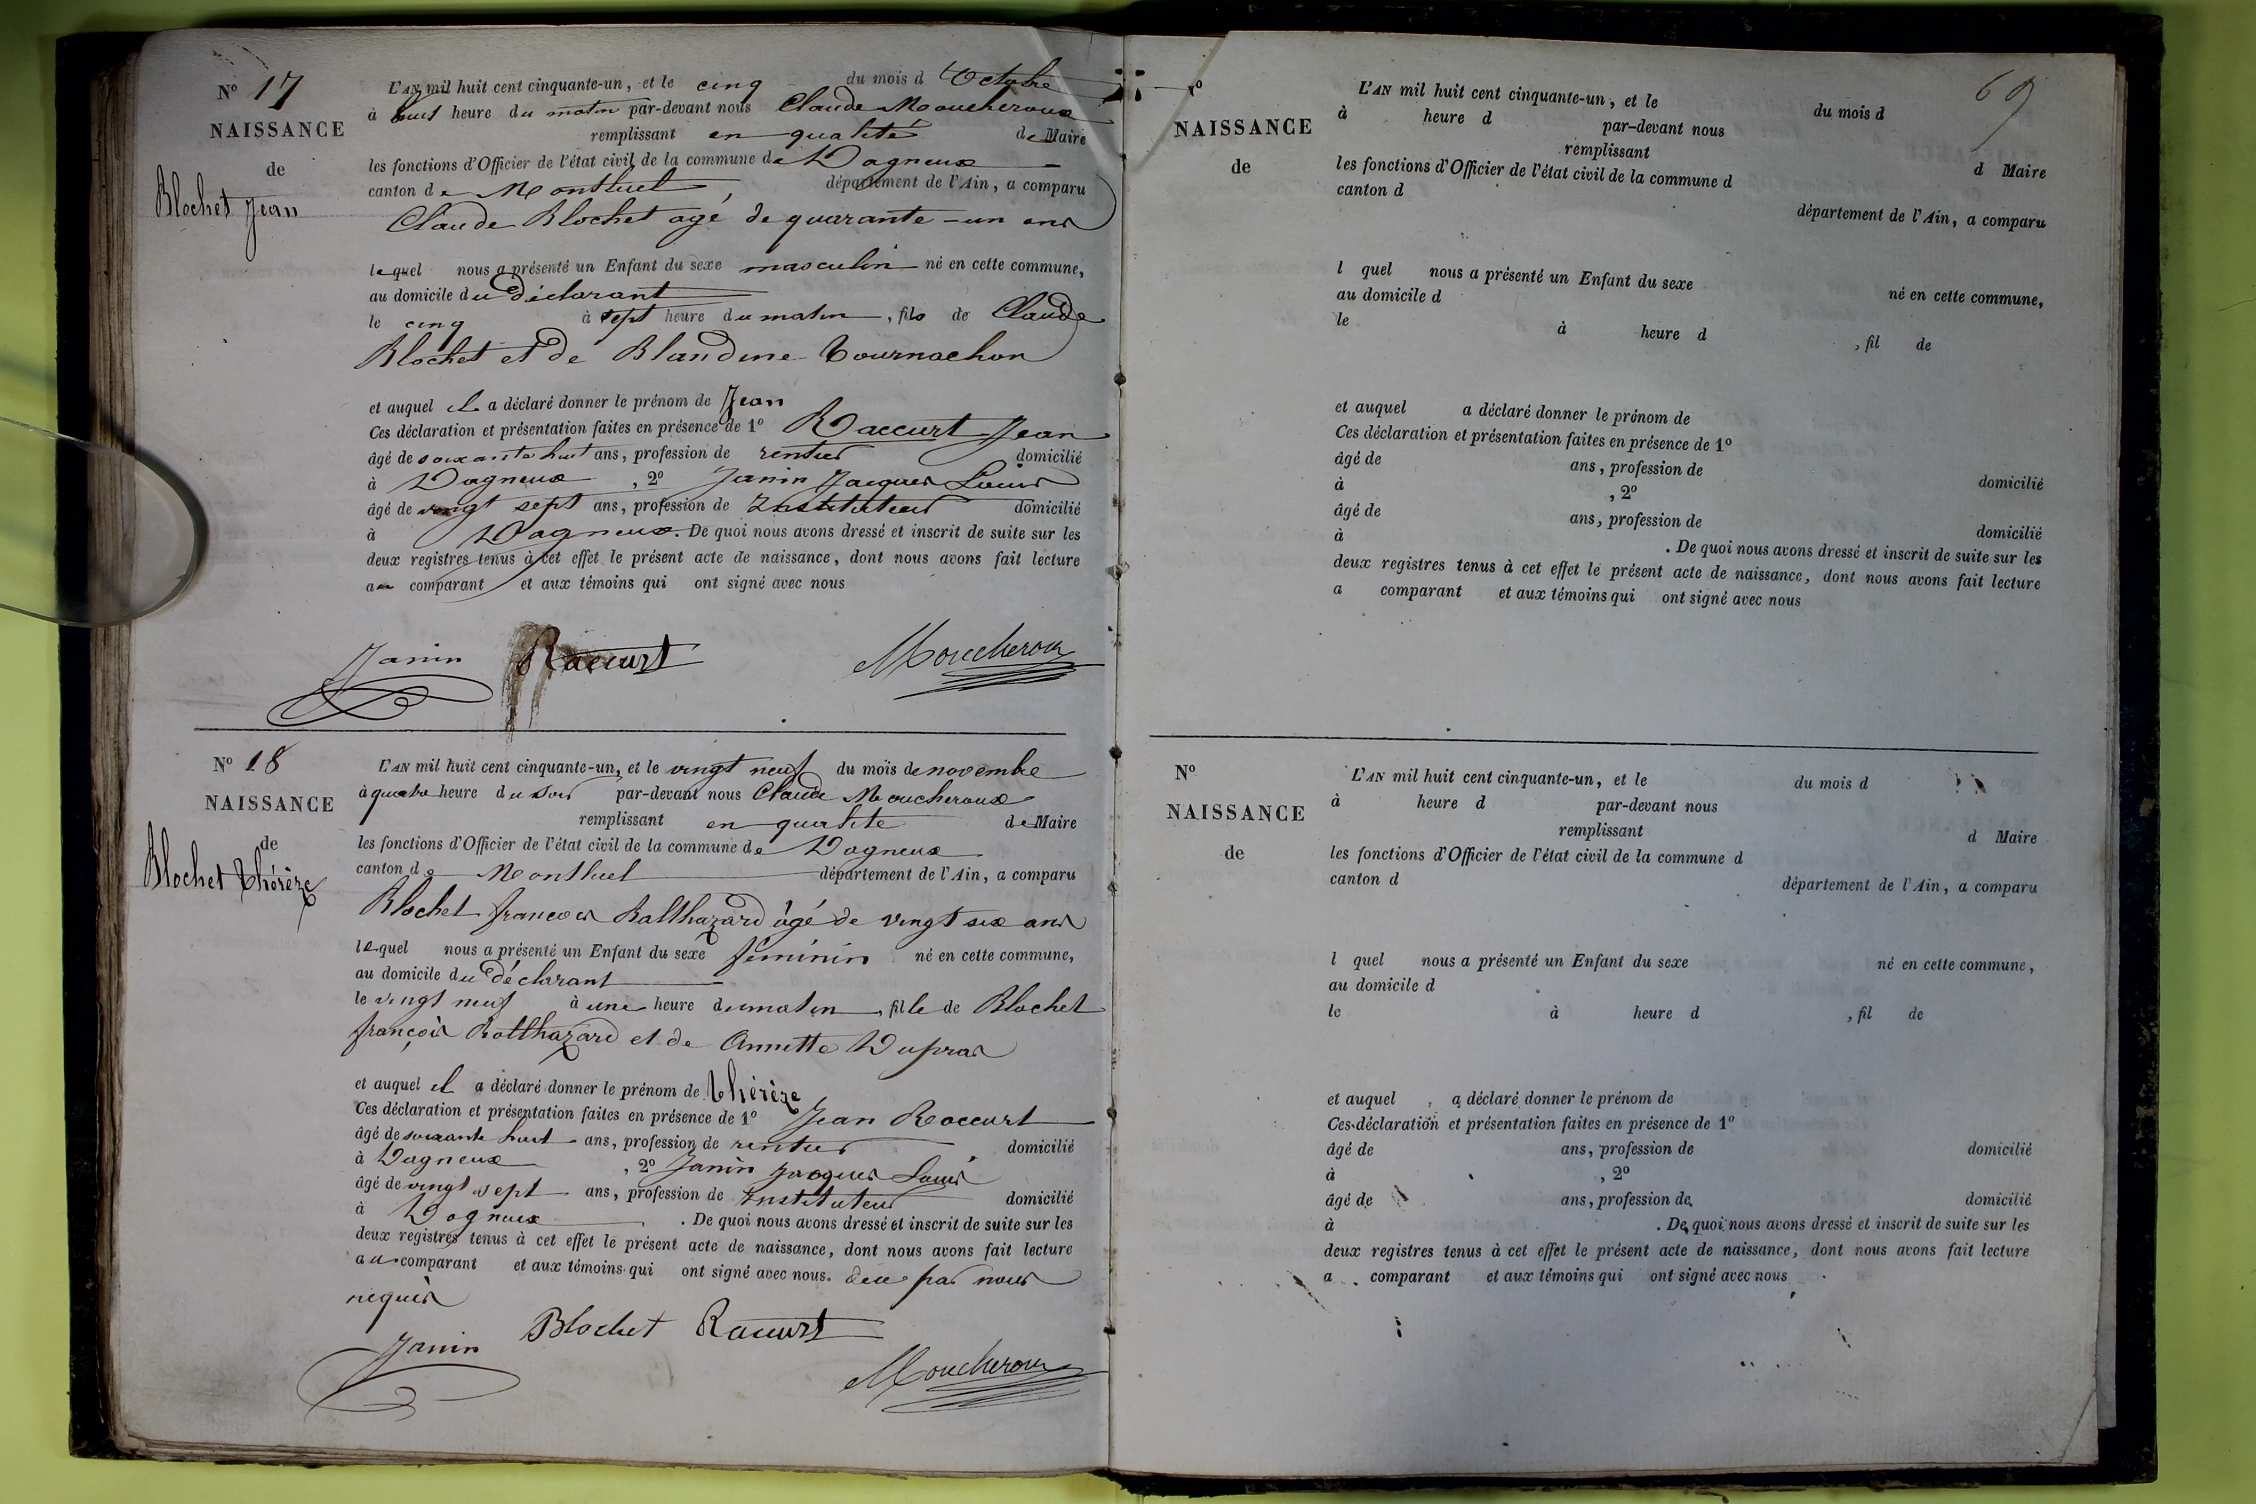 N° 17
NAISSANCE
de
Blochet Jean
L'AN mil huit cent cinquante-un, et le cinq du mois d'Octobre
à huit heure du matin par-devant nous Claude Moucheroux
remplissant en qualité de Maire
les fonctions d'Officier de l'état civil de la commune de Dagneux
canton de Montluel, département de l'Ain, a comparu
Claude Blochet agé de quarante-un ans
lequel nous a présenté un Enfant du sexe masculin né en cette commune,
au domicile du déclarant
le cinq à sept heure du matin, fils de Claude
Blochet et de Blandine Tournachon
et auquel il a déclaré donner le prénom de Jean
Ces déclaration et présentation faites en présence de 1° Raccurt Jean
âgé de soixante huit ans, profession de rentier domicilié
à Dagneux, 2° Janin Jacques Louis
âgé de vingt sept ans, profession de Instituteur domicilié
à Dagneux. De quoi nous avons dressé et inscrit de suite sur les
deux registres tenus à cet effet le présent acte de naissance, dont nous avons fait lecture
au comparant et aux témoins qui ont signé avec nous
Janin Raccurt Moucheroux
N° 18
NAISSANCE
de
Blochet thérèze
L'AN mil huit cent cinquante-un, et le vingt neuf du mois de novembre
à quatre heure du soir par-devant nous Claude Moucheroux
remplissant en qualité de Maire
les fonctions d'Officier de l'état civil de la commune de Dagneux
canton de Montluel département de l'Ain, a comparu
Blochet françois Balthazard âgé de vingt six ans
lequel nous a présenté un Enfant du sexe féminin né en cette commune,
au domicile du déclarant
le vingt neuf à une heure du matin, fille de Blochet
françois Balthazard et de Annette Dupras
et auquel il a déclaré donner le prénom de thérèze
Ces déclaration et présentation faites en présence de 1° Jean Raccurt
âgé de soixante huit ans, profession de rentier domicilié
à Dagneux, 2° Janin Jacques Louis
âgé de vingt sept ans, profession de Instituteur domicilié
à Dagneux. De quoi nous avons dressé et inscrit de suite sur les
deux registres tenus à cet effet le présent acte de naissance, dont nous avons fait lecture
au comparant et aux témoins qui ont signé avec nous. de ce par nous
requis
Janin Blochet Raccurt
Moucheroux
69
N°
NAISSANCE
de
L'AN mil huit cent cinquante-un, et le du mois d
à heure d par-devant nous
remplissant d Maire
les fonctions d'Officier de l'état civil de la commune d
canton d département de l'Ain, a comparu
l quel nous a présenté un Enfant du sexe né en cette commune,
au domicile d
le à heure d , fil de
et auquel a déclaré donner le prénom de
Ces déclaration et présentation faites en présence de 1°
âgé de ans, profession de domicilié
à , 2°
âgé de ans, profession de domicilié
à . De quoi nous avons dressé et inscrit de suite sur les
deux registres tenus à cet effet le présent acte de naissance, dont nous avons fait lecture
a comparant et aux témoins qui ont signé avec nous
N°
NAISSANCE
de
L'AN mil huit cent cinquante-un, et le du mois d
à heure d par-devant nous
remplissant d Maire
les fonctions d'Officier de l'état civil de la commune d
canton d département de l'Ain, a comparu
l quel nous a présenté un Enfant du sexe né en cette commune,
au domicile d
le à heure d , fil de
et auquel a déclaré donner le prénom de
Ces déclaration et présentation faites en présence de 1°
âgé de ans, profession de domicilié
à , 2°
âgé de ans, profession de domicilié
à . De quoi nous avons dressé et inscrit de suite sur les
deux registres tenus à cet effet le présent acte de naissance, dont nous avons fait lecture
a comparant et aux témoins qui ont signé avec nous